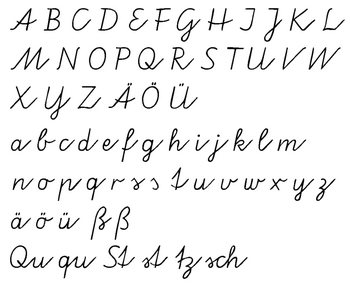 A B C D E F G H I J K L
M N O P Q R S T U V W
X Y Z Ä Ö Ü
a b c d e f g h i j k l m
n o p q r s s t u v w x y z
ä ö ü ß ß
Qu qu St st tz sch